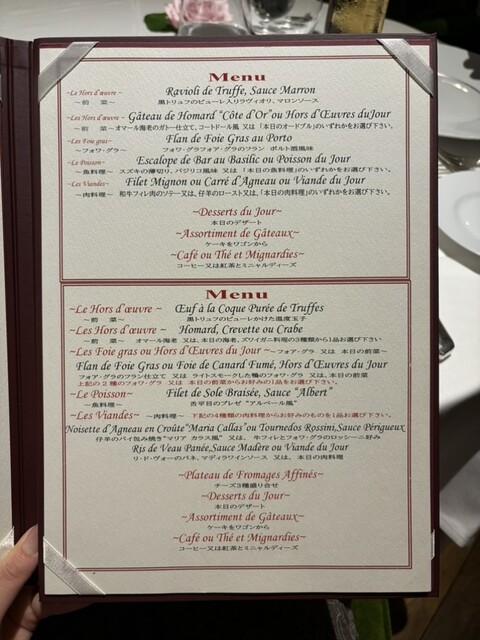 Menu
~Le Hors d'œuvre~ Ravioli de Truffe, Sauce Marron
～前　菜～ 黒トリュフのピューレ入りラヴィオリ、マロンソース
~Les Hors d'œuvre~ Gâteau de Homard "Côte d'Or"ou Hors d'Œuvres duJour
～前　菜～オマール海老のガトー仕立て、コートドール風 又は「本日のオードブル」のいずれかをお選び下さい。
~Les Foie gras~ Flan de Foie Gras au Porto
～フォワ・グラ～ フォワ・グラフォア・グラのフラン ポルト酒風味
~Le Poisson~ Escalope de Bar au Basilic ou Poisson du Jour
～魚料理～ スズキの薄切り、バジリコ風味 又は「本日の魚料理」のいずれかをお選び下さい。
~Les Viandes~ Filet Mignon ou Carré d'Agneau ou Viande du Jour
～肉料理～ 和牛フィレ肉のソテー又は、仔羊のロースト又は、「本日の肉料理」のいずれかをお選び下さい。
~Desserts du Jour~
本日のデザート
~Assortiment de Gâteaux~
ケーキをワゴンから
~Café ou Thé et Mignardies~
コーヒー又は紅茶とミニャルディーズ
Menu
~Le Hors d'œuvre ~ Œuf à la Coque Purée de Truffes
～前　菜～ 黒トリュフのピューレかけた温度玉子
~Les Hors d'œuvre ~ Homard, Crevette ou Crabe
～前　菜～ オマール海老 又は、本日の海老、ズワイガニ料理の3種類から1品お選び下さい
~Les Foie gras ou Hors d'Œuvres du Jour ~ ～フォワ・グラ 又は 本日の前菜～
Flan de Foie Gras ou Foie de Canard Fumé, Hors d'Œuvres du Jour
フォワ・グラのフラン仕立て 又は ライトスモークした鴨のフォワ・グラ 又は、本日の前菜
上記の2種のフォワ・グラ 又は 本日の前菜からお好みの1品をお選び下さい。
~Le Poisson~ Filet de Sole Braisée, Sauce "Albert"
～魚料理～ 舌平目のブレゼ "アルベール風"
~Les Viandes~ ～肉料理～ 下記の4種類の肉料理からお好みのものを1品お選び下さい。
Noisette d'Agneau en Croûte"Maria Callas"ou Tournedos Rossini,Sauce Périgueux
仔羊のパイ包み焼き"マリア カラス風" 又は、 牛フィレとフォワ・グラのロッシーニ好み
Ris de Veau Panée,Sauce Madère ou Viande du Jour
リ・ド・ヴォーのパネ、マディラワインソース 又は、 本日の肉料理
~Plateau de Fromages Affinés~
チーズ3種盛り合せ
~Desserts du Jour~
本日のデザート
~Assortiment de Gâteaux~
ケーキをワゴンから
~Café ou Thé et Mignardies~
コーヒー又は紅茶とミニャルディーズ